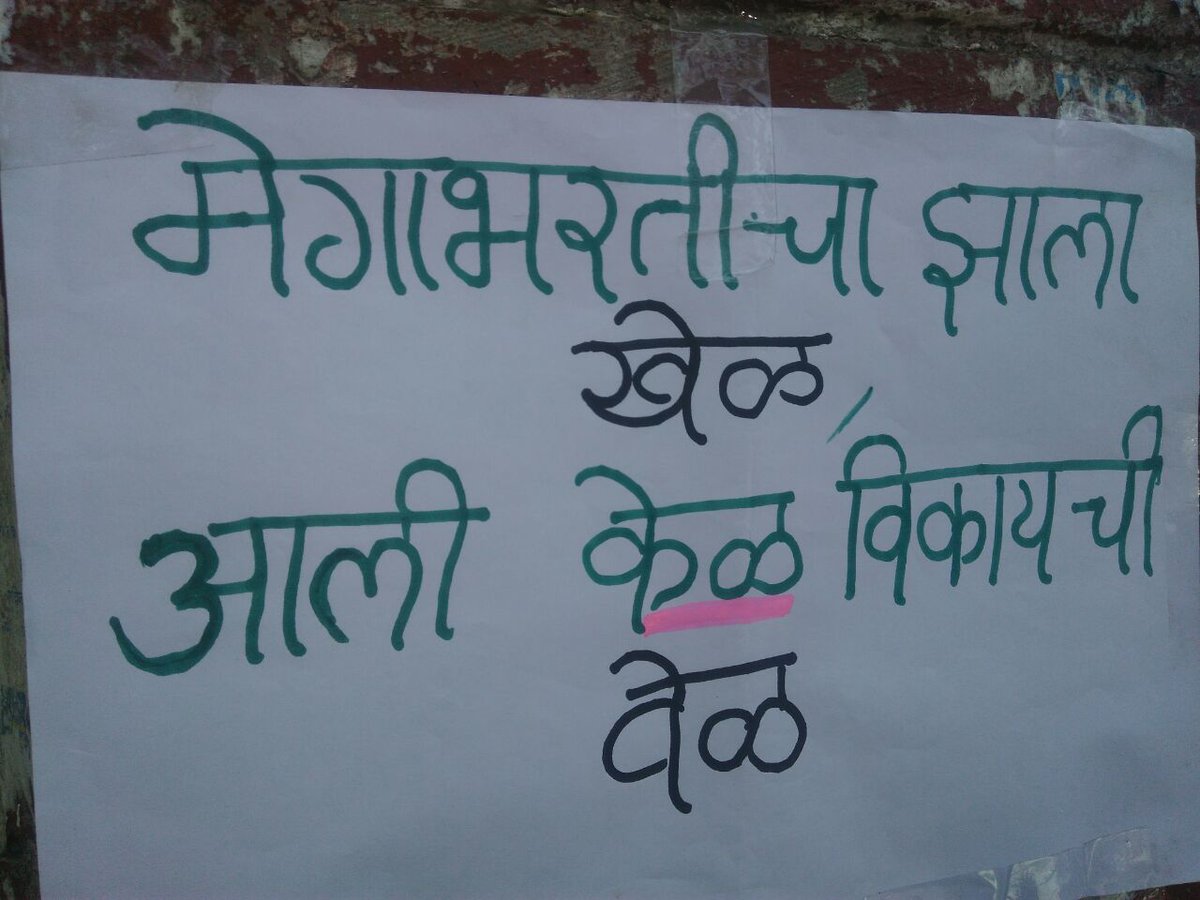 मेगाभरतीचा झाला
खेळ
आली केळ विकायची
वेळ